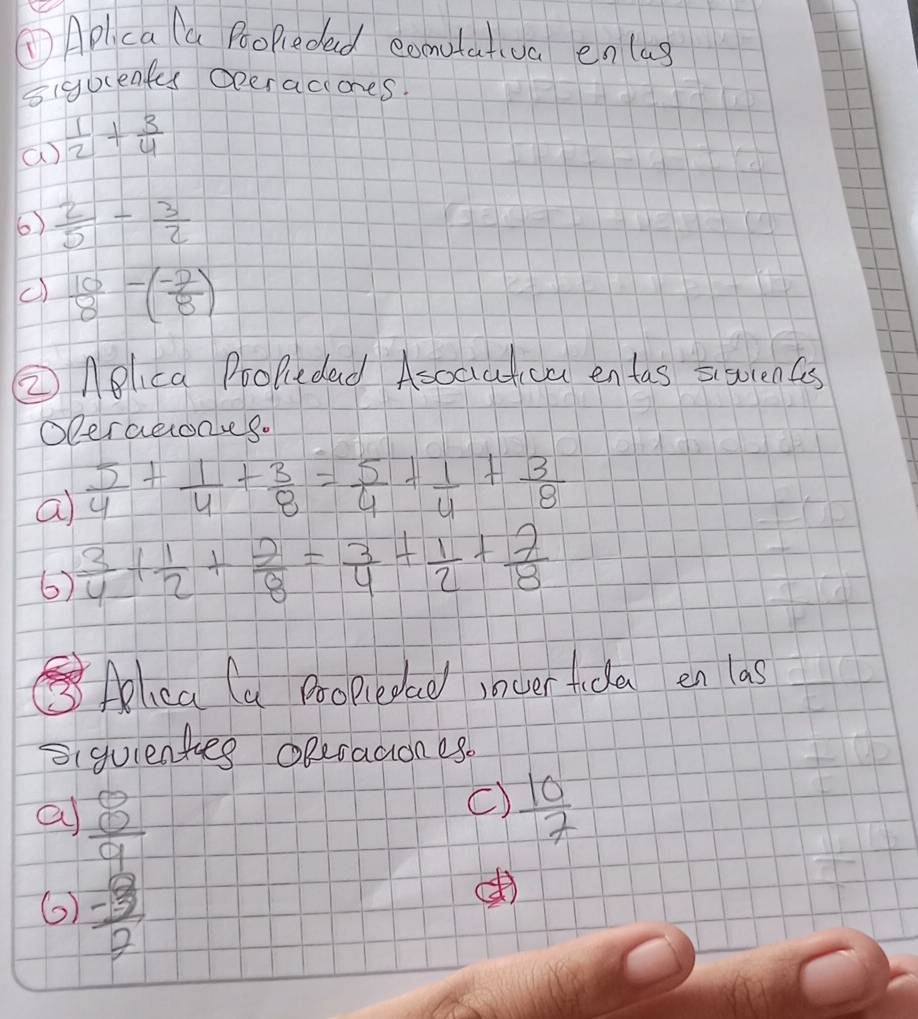 ① Aplica la Propiedad comutativa en las
siguientes Operaciones.
a) 1/2 + 3/4
b) 2/5 - 3/2
c) 10/8 - (-2/8)
② Aplica Propiedad Asociativa en las siguientes
operaciones.
a) 5/4 + 1/4 + 3/8 = 5/4 + 1/4 + 3/8
b) 3/4 + 1/2 + 2/8 = 3/4 + 1/2 + 2/8
③ Aplica la Propiedad invertida en las
siguientes operaciones.
a) 8/9 c) 10/7
b) -3/2